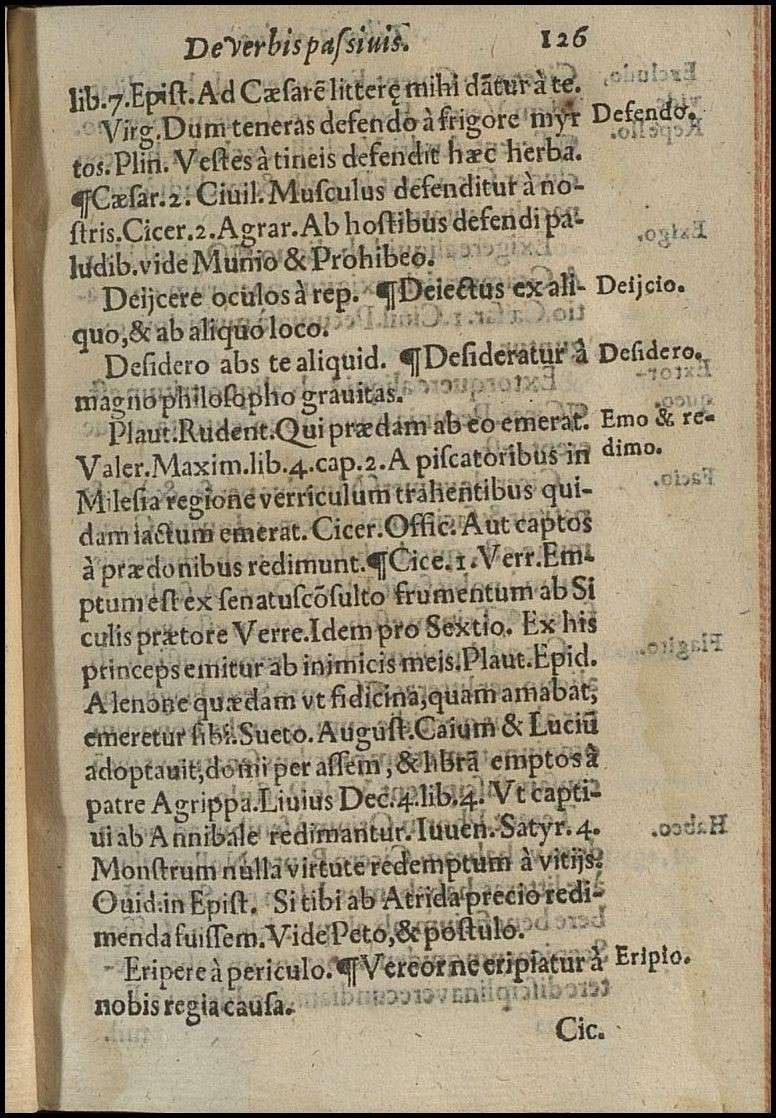 De verbis paſsiuis. 126
lib.7.Epiſt. Ad Cæſarē litterę mihi dātur à te.
Virg. Dum teneras defendo à frigore myr Defendo.
tos. Plin. Veſtes à tineis defendit hæc herba.
¶Cæſar. 2. Ciuil. Muſculus defenditur à no-
ſtris. Cicer. 2. Agrar. Ab hoſtibus defendi pa-
ludib. vide Munio & Prohibeo.
Deijcere oculos à rep. ¶Deiectus ex ali- Deijcio.
quo, & ab aliquo loco.
Deſidero abs te aliquid. ¶Deſideratur à Deſidero.
magno philoſopho grauitas.
Plaut. Rudent. Qui prædam ab eo emerat. Emo & re-
Valer. Maxim. lib. 4. cap. 2. A piſcatoribus in dimo.
Mileſia regione verriculum trahentibus qui-
dam iactum emerat. Cicer. Offic. Aut captos
à prædonibus redimunt. ¶Cice. 1. Verr. Em-
ptum eſt ex ſenatuſcōſulto frumentum ab Si
culis prætore Verre. Idem pro Sextio. Ex his
princeps emitur ab inimicis meis. Plaut. Epid.
A lenone quædam vt fidicina, quam amabat,
emeretur ſibi. Sueto. Auguſt. Caium & Luciū
adoptauit, domi per aſſem, & librā emptos à
patre Agrippa. Liuius Dec. 4. lib. 4. Vt capti-
ui ab Annibale redimantur. Iuuen. Satyr. 4.
Monſtrum nulla virtute redemptum à vitijs.
Ouid. in Epiſt. Si tibi ab Atrida precio redi-
menda fuiſſem. Vide Peto, & poſtulo.
Eripere à periculo. ¶Vereor ne eripiatur à Eripio.
nobis regia cauſa.
Cic.